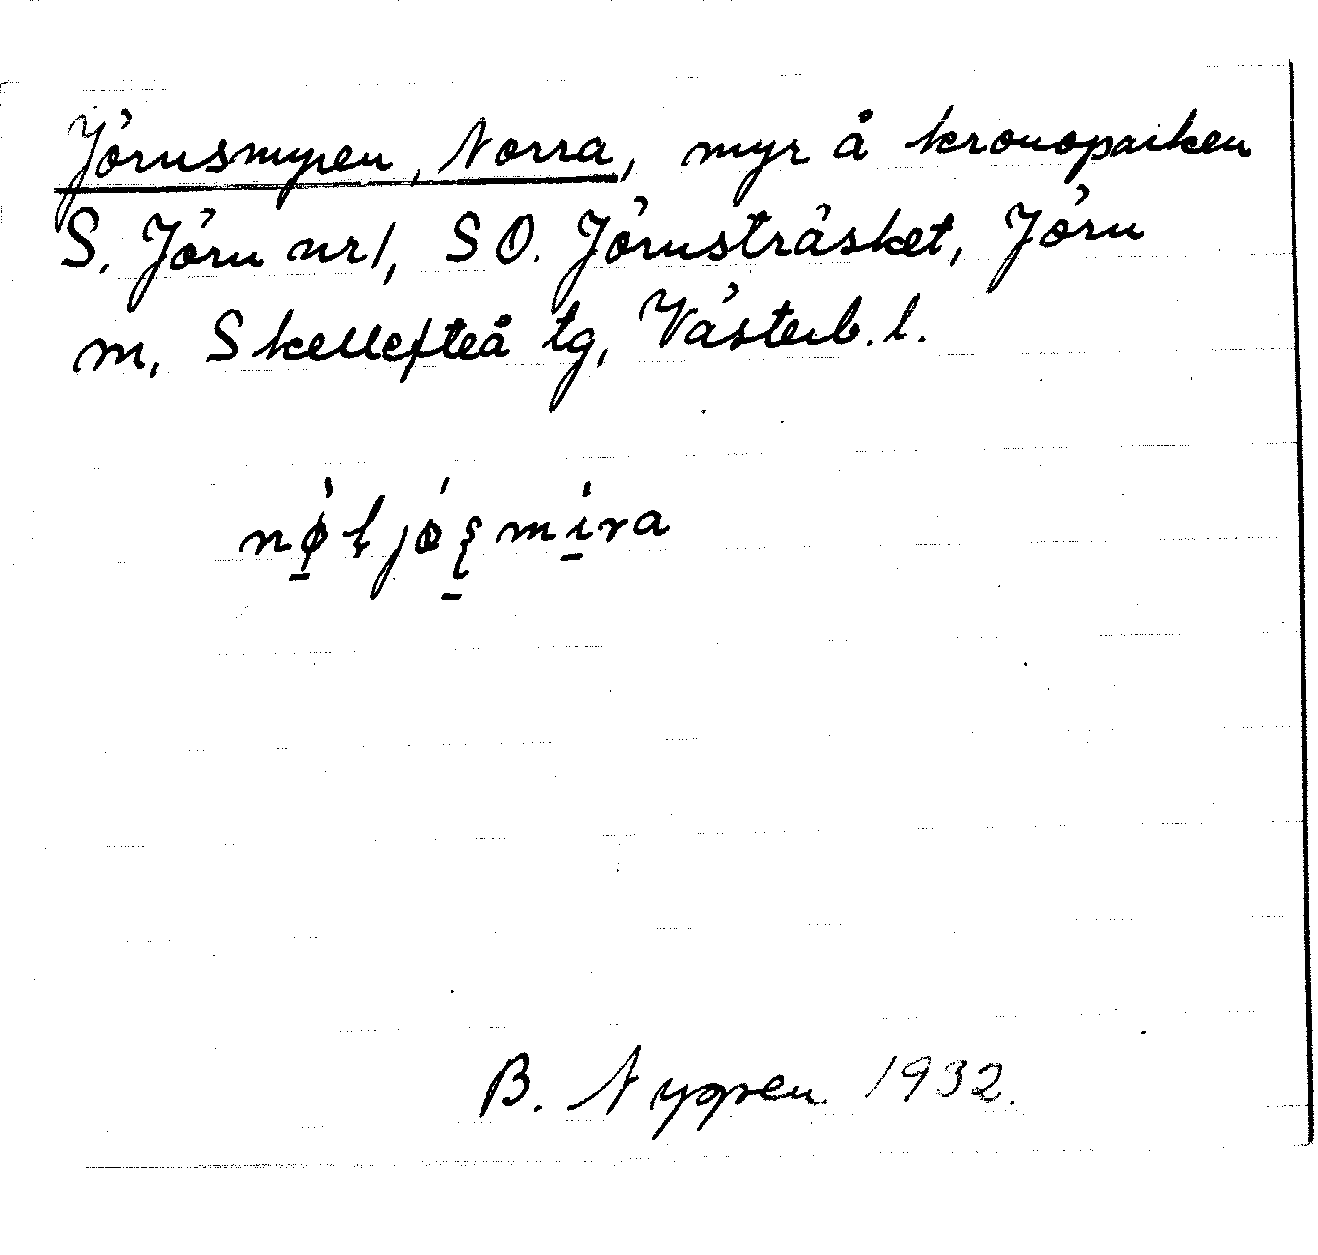 Jörnsmyren, Norra, myr å kronoparken
S. Jörn nr 1, SO. Jörnsträsket, Jörn
sn, Skellefteå tg, Västerb. l.
B. Nygren 1932.